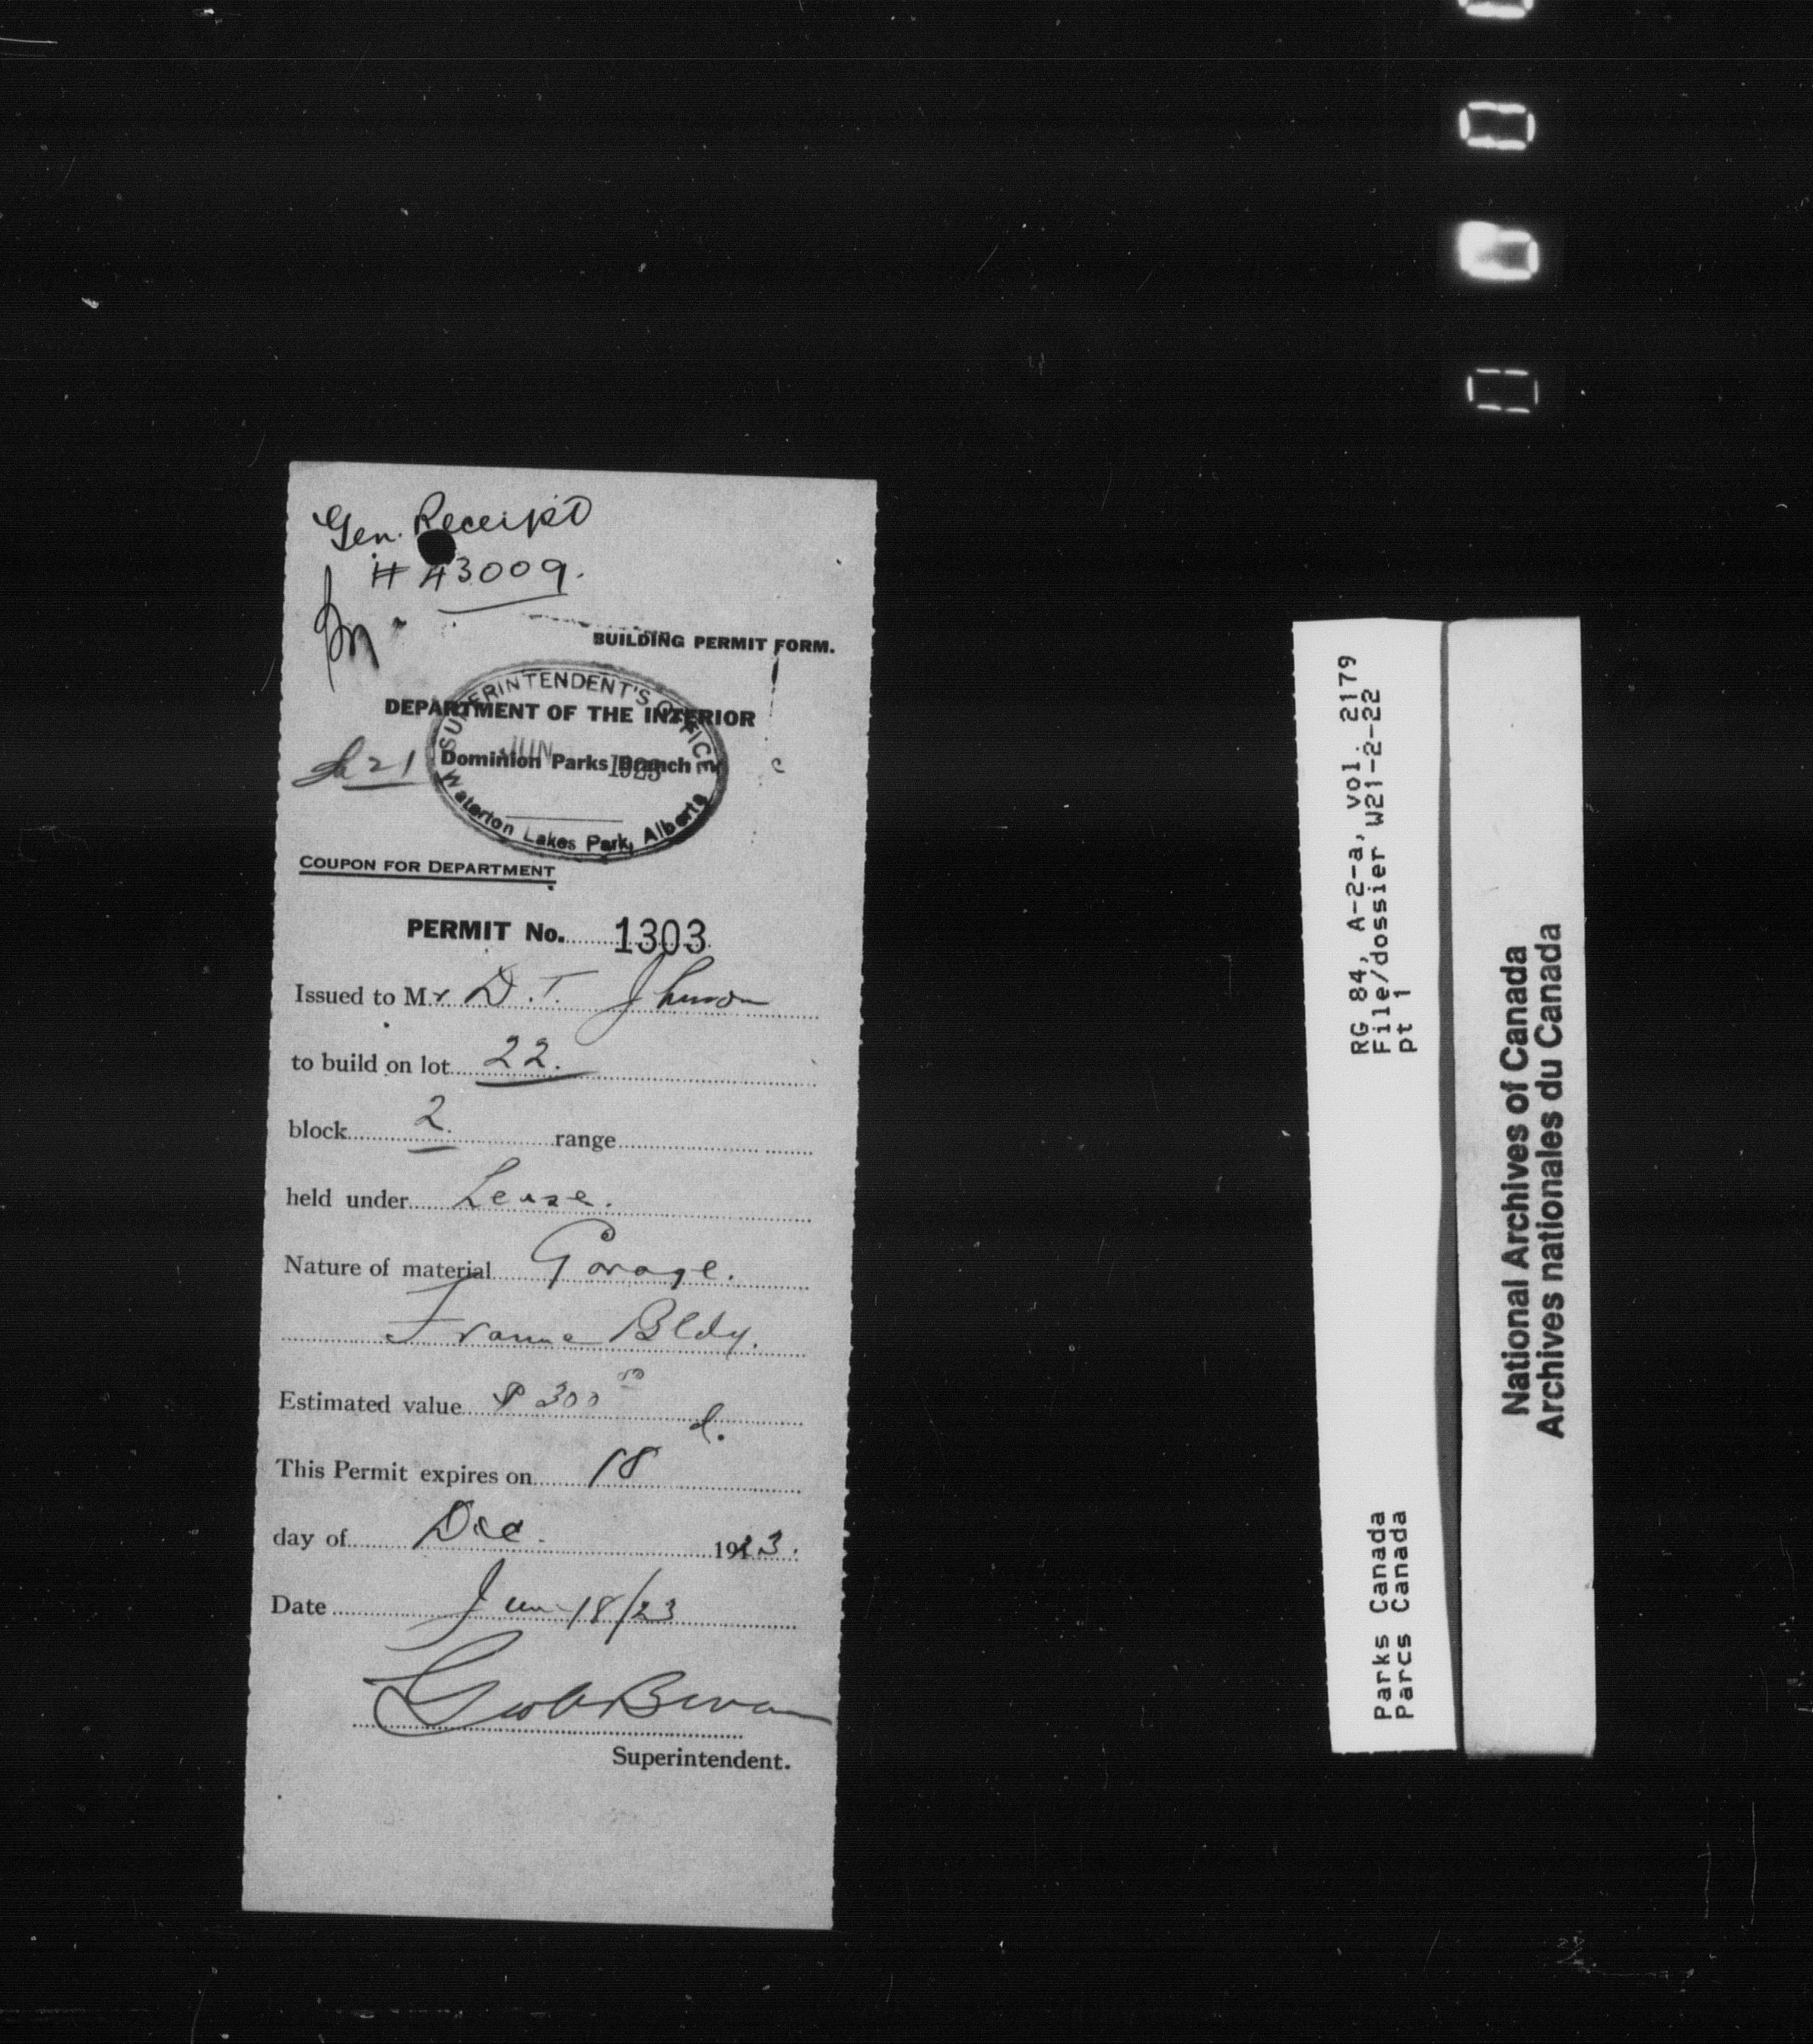 Gen. Receipt
# 43009.
BUILDING PERMIT FORM.
SUPERINTENDENT'S OFFICE
DEPARTMENT OF THE INTERIOR
JUN 1923
Dominion Parks Branch
Waterton Lakes Park, Alberta
COUPON FOR DEPARTMENT
PERMIT No. 1303
Issued to Mr D. T. Jhnson
to build on lot 22.
block 2. range
held under Lease.
Nature of material Garage.
Frame Bldg.
Estimated value $ 300 00
This Permit expires on 18
day of Dec. 1923.
Date Jun 18/23
Superintendent.
RG 84, A-2-a, vol. 2179
File/dossier W21-2-22
pt 1
Parks Canada
Parcs Canada
National Archives of Canada
Archives nationales du Canada